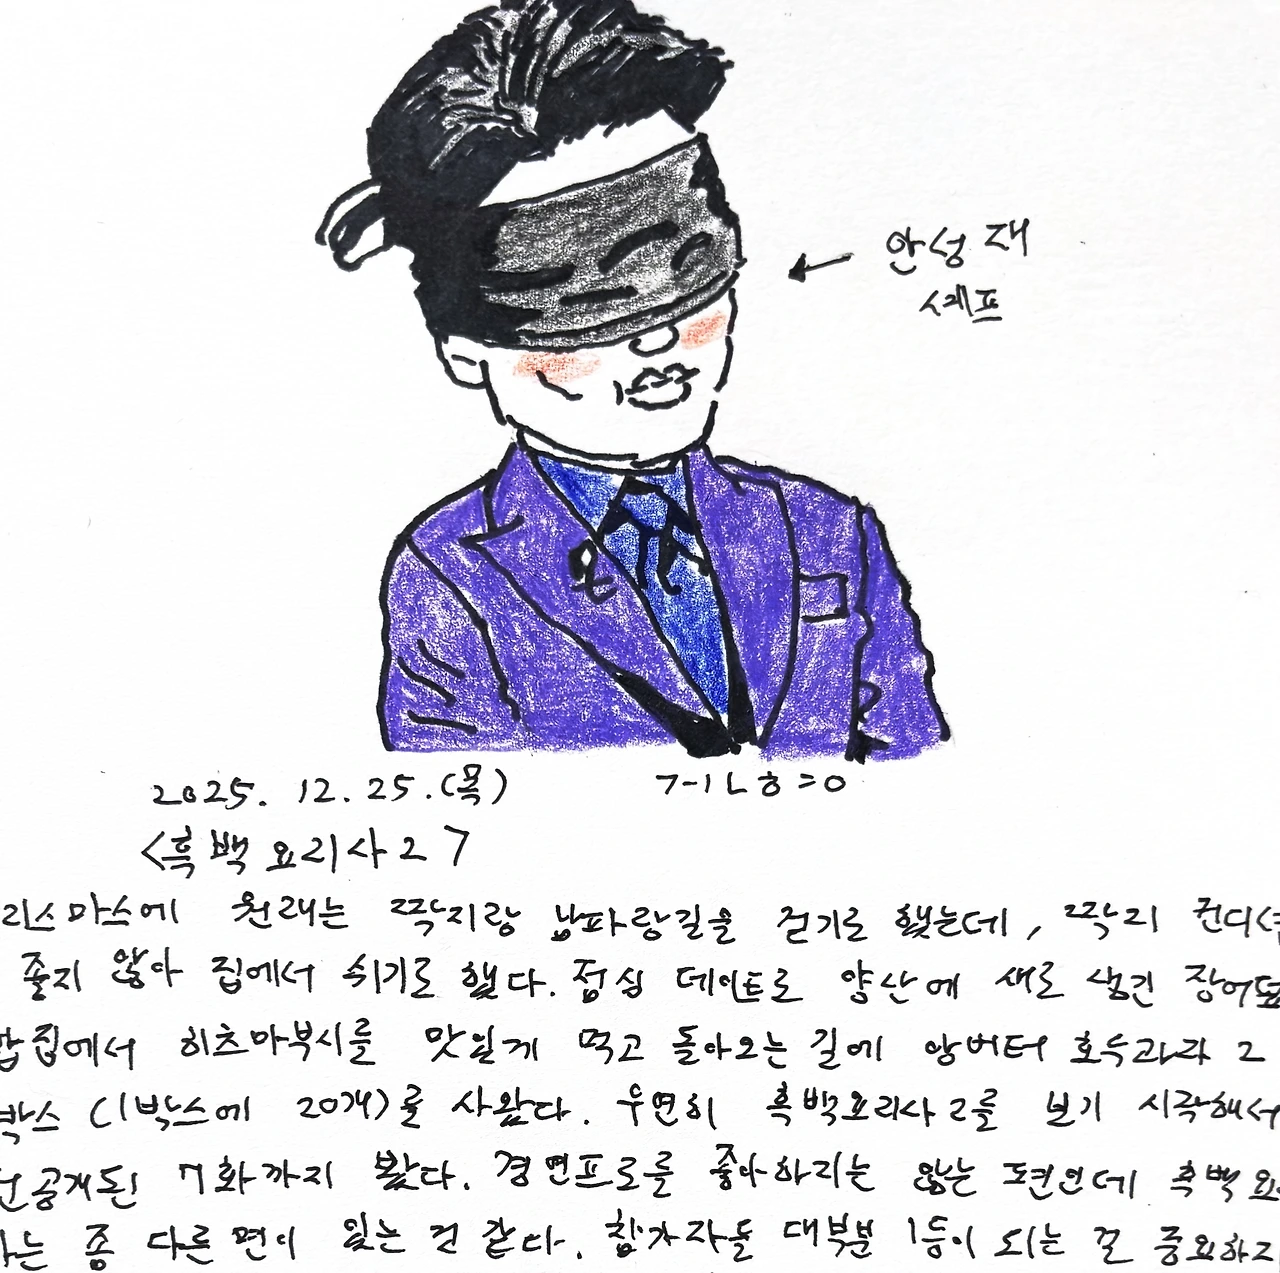 안성재
셰프
2025. 12. 25.(목)
<흑백요리사2>
리스마스에 원래는 짝지랑 남파랑길을 걷기로 했는데, 짝지 컨디션
좋지 않아 집에서 쉬기로 했다. 점심 데이트로 양산에 새로 생긴 장어덮
밥집에서 히츠마부시를 맛있게 먹고 돌아오는 길에 앙버터 호두과자 2
박스 (1박스에 20개)를 사왔다. 우연히 흑백요리사2를 보기 시작해서
공개된 7화까지 봤다. 경연프로를 좋아하지는 않는 편인데 흑백요
는 좀 다른 면이 있는 것 같다. 참가자들 대부분 1등이 되는 것 중요하지